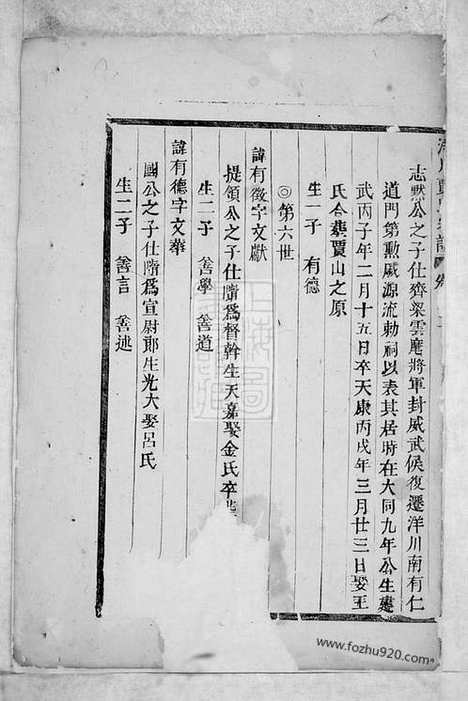 志默公之子仕齊梁雲麾將軍封威武侯復遷洋川南有仁
道門第勲威源流勅祠以表其居時在大同九年公生建
武丙子年二月十五日卒天康丙戌年三月廿三日娶王
氏合葬賈山之原
生一子 有德
◎第六世
諱有徵字文獻
提領公之子仕隋爲督幹生天嘉娶金氏卒
生二子 善學 善道
諱有德字文華
國公之子仕隋爲宣尉郎生光大娶呂氏
生二子 善言 善述
www.fozhu920.com